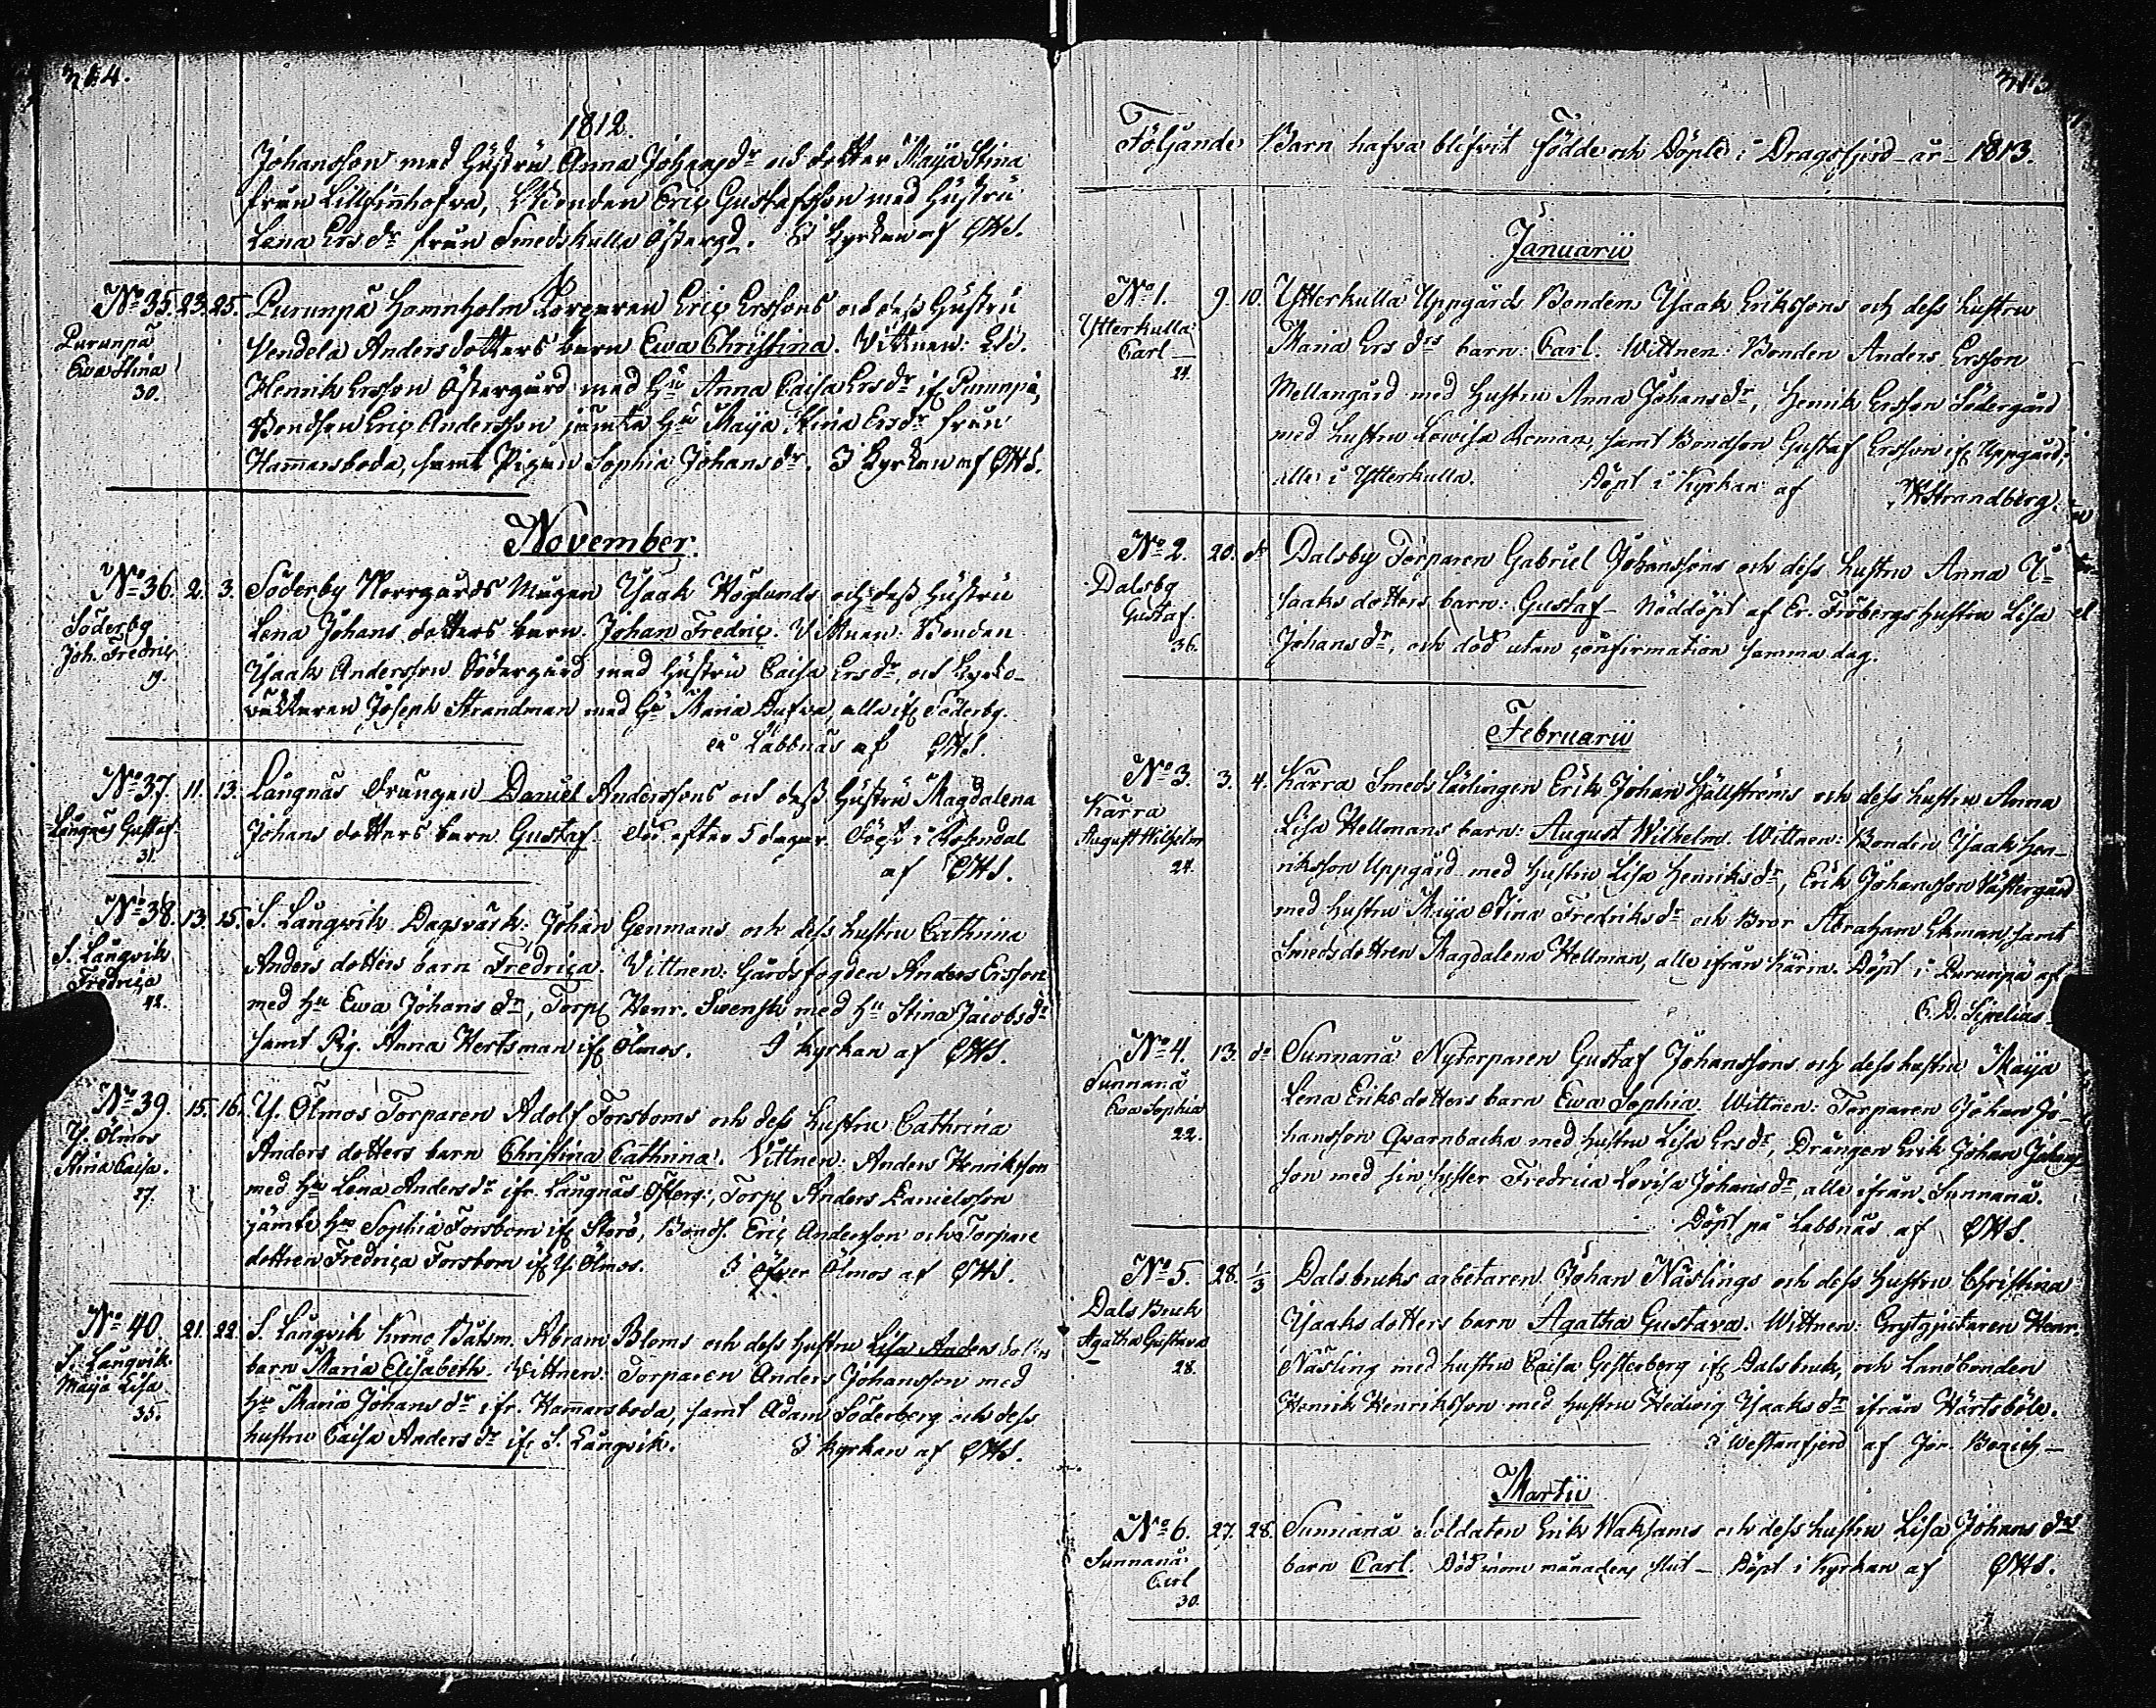 1812.
Johansson med Hustru Anna Johansdr och dotter Maija Stina
från Lillfinhofva, Bonden Eriç Gustafsson med Hustru
Lena Ersdr från Smedskulla Östergd. I Kyrkan af CHS.
No 35. 23. 25. Purunpä Hamnholm Torparen Eriç Erssons och dess Hustru
Purunpä
Ewa Stina
30.
Vendela Andersdotters barn Ewa Christina. Vittnen:
Henrik Ersson Östergård med Hu Anna Caisa Ersdr ifr Purunpä,
Bondson Eriç Andersson jämte Hu Maija Stina Ersdr från
Hammarsboda, samt Pigan Sophia Johansdr. I Kyrkan af CHS.
November.
No 36. 2. 3. Söderby Norrgårds Mågen Ysaak Höglunds och dess Hustru
Söderby
Joh. Fredriç
19.
Lena Johans dotters barn Johan Fredriç. Vittnen: Bonden
Ysaak Andersson Södergård med Hustru Caisa Ersdr, och Kyrko-
väktaren Joseph Strandman med Hu Maria Dufva, alla ifr Söderby.
på Labbnäs af CHS.
No 37. 11. 13. Långnäs Drängen Daniel Anderssons och dess Hustru Magdalena
Långnäs Gustaf
31.
Johans dotters barn Gustaf. Död efter 5 dagar. Döpt i Rosendal
af CHS.
No 38. 13. 15. S. Långvik Dagsvärk: Johan Genmans och dess hustru Cathrina
S. Långvik
Fredriça
42.
Anders dotters barn Fredriça. Vittnen: Gårdsfogden Anders Ersson
med Hu Ewa Johans dr, Torp Henr. Svensk med Hu Stina Jacobsdr
samt Pig. Anna Hertsman ifr Ölmos. I kyrkan af CHS.
No 39. 15. 16. Y. Ölmos Torparen Adolf Forsboms och dess hustru Cathrina
Y. Ölmos
Stina Caisa.
27.
Anders dotters barn Christina Cathrina. Vittnen: Anders Henriksson
med Hu Lena Andersdr ifr. Långnäs Österg:, Torp Anders Danielsson
jämte Hu Sophia Forsbom ifr Storö, Bonds. Eriç Andersson och Torpare
dottren Fredriça Forsbom ifr Y. Ölmos. I Öfver Ölmos af CHS.
No 40. 21. 22. S. Långvik Krono Båtsm. Abram Bloms och dess hustru Lisa Anders dotters
S. Långvik
Maija Lisa
35.
barn Maria Elisabeth. Vittnen: Torparen Anders Johansson med
Hu Maria Johans dr ifr. Hammarsboda, samt Adam Söderberg och dess
hustru Caisa Anders dr ifr S. Långvik. I kyrkan af CHS.
Följande Barn hafva blifvit födde och Döpte i Dragsfjerd år 1813.
Januarii
No 1. 9. 10. Ytterkulla Uppgårds Bonden Ysaak Erikssons och dess hustru
Ytterkulla
Carl
24.
Maria Ers drs barn: Carl. Wittnen: Bonden Anders Ersson
Mellangård med Hustru Anna Johansdr, Henrik Ersson Södergård
med hustru Lowisa Reman, samt Bondson Gustaf Ersson ifr Uppgård,
alle i Ytterkulla. Döpt i Kyrkan af Strandberg.
No 2. 20. do Dalsby Torparen Gabriel Johanssons och dess hustru Anna Y=
Dalsby
Gustaf.
36.
saaks dotters barn: Gustaf. Nöddöpt af Er. Fröbergs hustru Lisa
Johansdr, och död utan confirmation samma dag.
Februarii
No 3. 3. 4. Kärra Smeds Lärlingen Erik Johan Hjällströms och dess hustru Anna
Kärra
August Wilhelm
24.
Lisa Hellmans barn: August Wilhelm. Wittnen: Bonden Ysaak Hen-
riksson Uppgård med hustru Lisa Henriksdr, Erik Johansson Västergård
med hustru Maija Stina Fredriksdr och Bror Abraham Ekman, samt
Smedsdottren Magdalena Hellman, alle ifrån Kärra. Döpt i Purunpä af
C. D. Sipelius
No 4. 13. do Sunnanå Nytorparen Gustaf Johanssons och dess hustru Maija
Sunnanå
Ewa Sophia
22.
Lena Eriksdotters barn Ewa Sophia. Wittnen: Torparen Johan Jo-
hansson Qvarnbacka med hustru Lisa Ersdr, Drängen Erik Johan Johans-
son med sin syster Fredrica Lovisa Johansdr, alle ifrån Sunnanå.
Döpt på Labbnäs af CHS.
No 5. 28. 1/3 Dalsbruks arbetaren Johan Näslings och dess hustru Christina
Dals Bruk
Agatha Gustava
28.
Ysaaks dotters barn Agatha Gustava. Wittnen: Grytgjutaren Henr.
Näsling med hustru Caisa Gesterberg ifr Dalsbruk, och Landbonden
Henrik Henriksson med hustru Hedvig Ysaaksdr ifrån Härtsböle.
i Westanfjerd af
Martii
No 6. 27. 28. Sunnanå Soldaten Erik Waksams och dess hustru Lisa Johans drs
Sunnanå
Carl
30.
barn Carl. Död inom månadens slut — Döpt i Kyrkan af CHS.